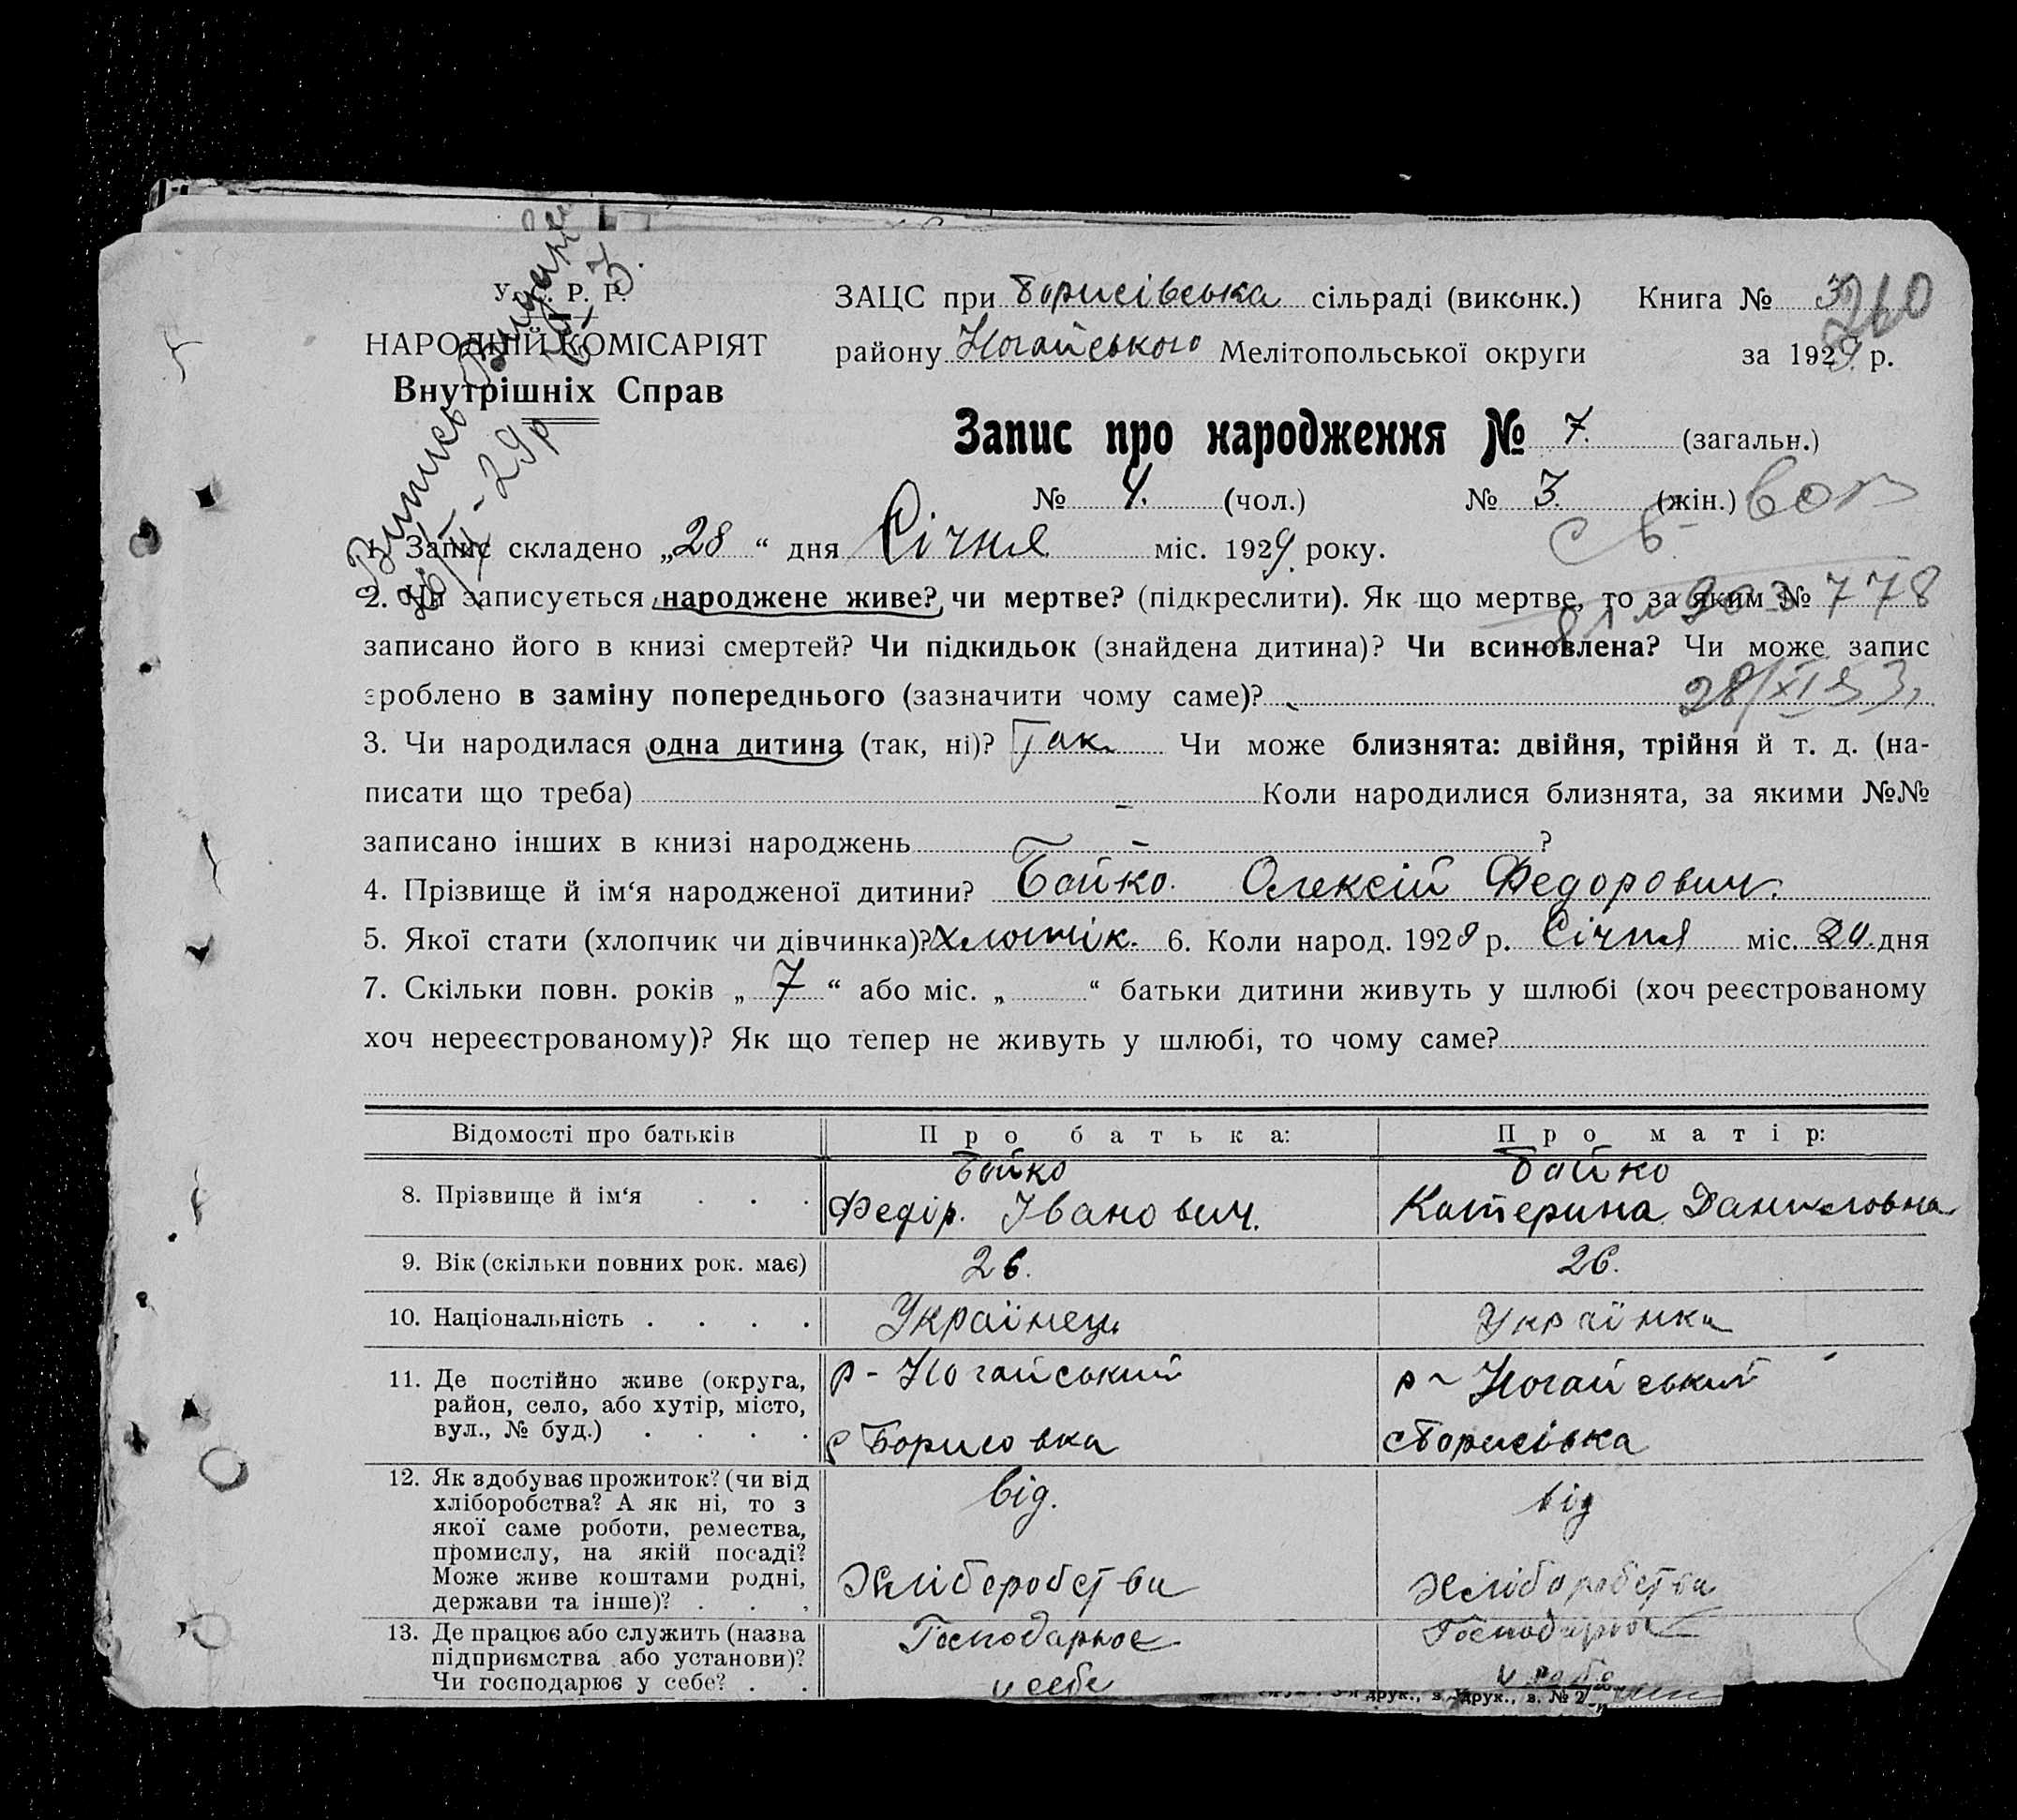 У. С. Р. Р.
НАРОДНІЙ КОМІСАРІЯТ
Внутрішніх Справ
Випись
ЗАЦС при Борисівська сільраді (виконк.) Книга № 3
210
району Ногайського Мелітопольської округи за 1929 р.
Запис про народження № 7. (загальн.)
№ 4. (чол.) № 3. (жін.)
1. Запис складено „28“ дня Січня міс. 1929 року.
2. Чи записується народжене живе? чи мертве? (підкреслити). Як що мертве, то за яким №
778
записано його в книзі смертей? Чи підкидьок (знайдена дитина)? Чи всиновлена? Чи може запис
зроблено в заміну попереднього (зазначити чому саме)?
28/XI 53
3. Чи народилася одна дитина (так, ні)? Так. Чи може близнята: двійня, трійня й т. д. (на-
писати що треба) – Коли народилися близнята, за якими №№
записано інших в книзі народжень – ?
4. Прізвище й ім‘я народженої дитини? Бойко. Олексій Федорович.
5. Якої стати (хлопчик чи дівчинка)? хлопчік. 6. Коли народ. 1929 р. Січня міс. 20 дня
7. Скільки повн. років „7“ або міс. „ “ батьки дитини живуть у шлюбі (хоч реєстрованому
хоч нереєстрованому)? Як що тепер не живуть у шлюбі, то чому саме?
Відомості про батьків Про батька: Про матір:
8. Прізвище й ім‘я . . . Бойко Федір. Іванович. Бойко Катерина Даниловна
9. Вік (скільки повних рок. має) 26. 26.
10. Національність . . . . Українець Українка
11. Де постійно живе (округа, р - Ногайський р - Ногайський
район, село, або хутір, місто,
вул., № буд.) . . . . с Борисовка с Борисівка
12. Як здобуває прожиток? (чи від від. від
хліборобства? А як ні, то з
якої саме роботи, ремества,
промислу, на якій посаді?
Може живе коштами родні, Хліборобства хліборобства
держави та інше)? . . .
13. Де працює або служить (назва Господарює Господарює
підприємства або установи)?
Чи господарює у себе? . . у себе у себе
друк., з. № 2